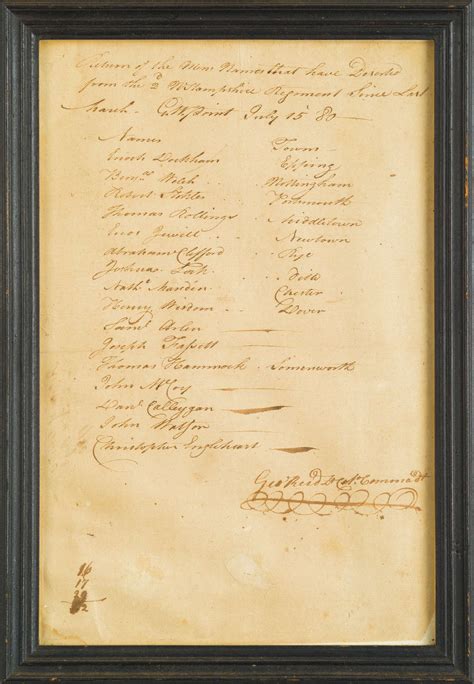 Return of the Mens Names that have Deserted
from the 2d N Hampshire Regiment Since Last
March - W Point July 15 80 -
Names Towns
Enoch Dockham Epping
Benj. Welch Nottingham
Robert Portsmouth
Thomas Rollings Middletown
Enos Jewell Newtown
Abraham Clifford Rye
Joshua Dito
Nath. Marden Chester
Henry Wisdom Dover
Sam Arlen
Joseph Fassett
Thomas Hammock Somersworth
John McCoy
Dan Calleygan
John Watson
Christopher Engleheart
Geo Reed Lt Col. Commadt
16
17